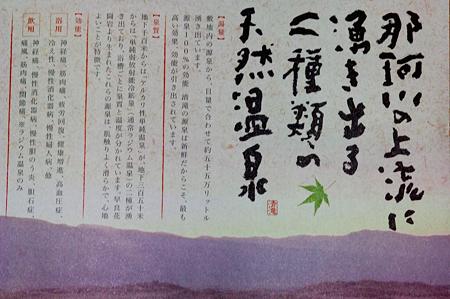 那珂川の上流に
湧き出る
二種類の
天然温泉
清滝
【湯量】
敷地内の源泉から、日量で合わせて約五十五万リットル
湧き出ています。
源泉100%の効能 清滝の源泉は新鮮だからこそ、最も
高い効果、効能が引き出されています。
【泉質】
地下千百米からは、「アルカリ性単純温泉」が、地下三百五十米
からは、「単純弱放射能冷鉱泉」(通常ラジウム温泉)の二種が湧
き出ており、浴槽ごとに泉質と温度が分かれています。早良花
崗岩より生まれたこれらの源泉は、肌触りよく滑らかで、心地
よいことが特徴です。
【効能】
浴用 神経痛、筋肉痛、疲労回復、健康増進、高血圧症、
冷え性、慢性消化器病、慢性婦人病、他
飲用 神経痛、慢性消化器病、慢性胆のう炎、胆石症、
痛風、筋肉痛、関節痛、※ラジウム温泉のみ